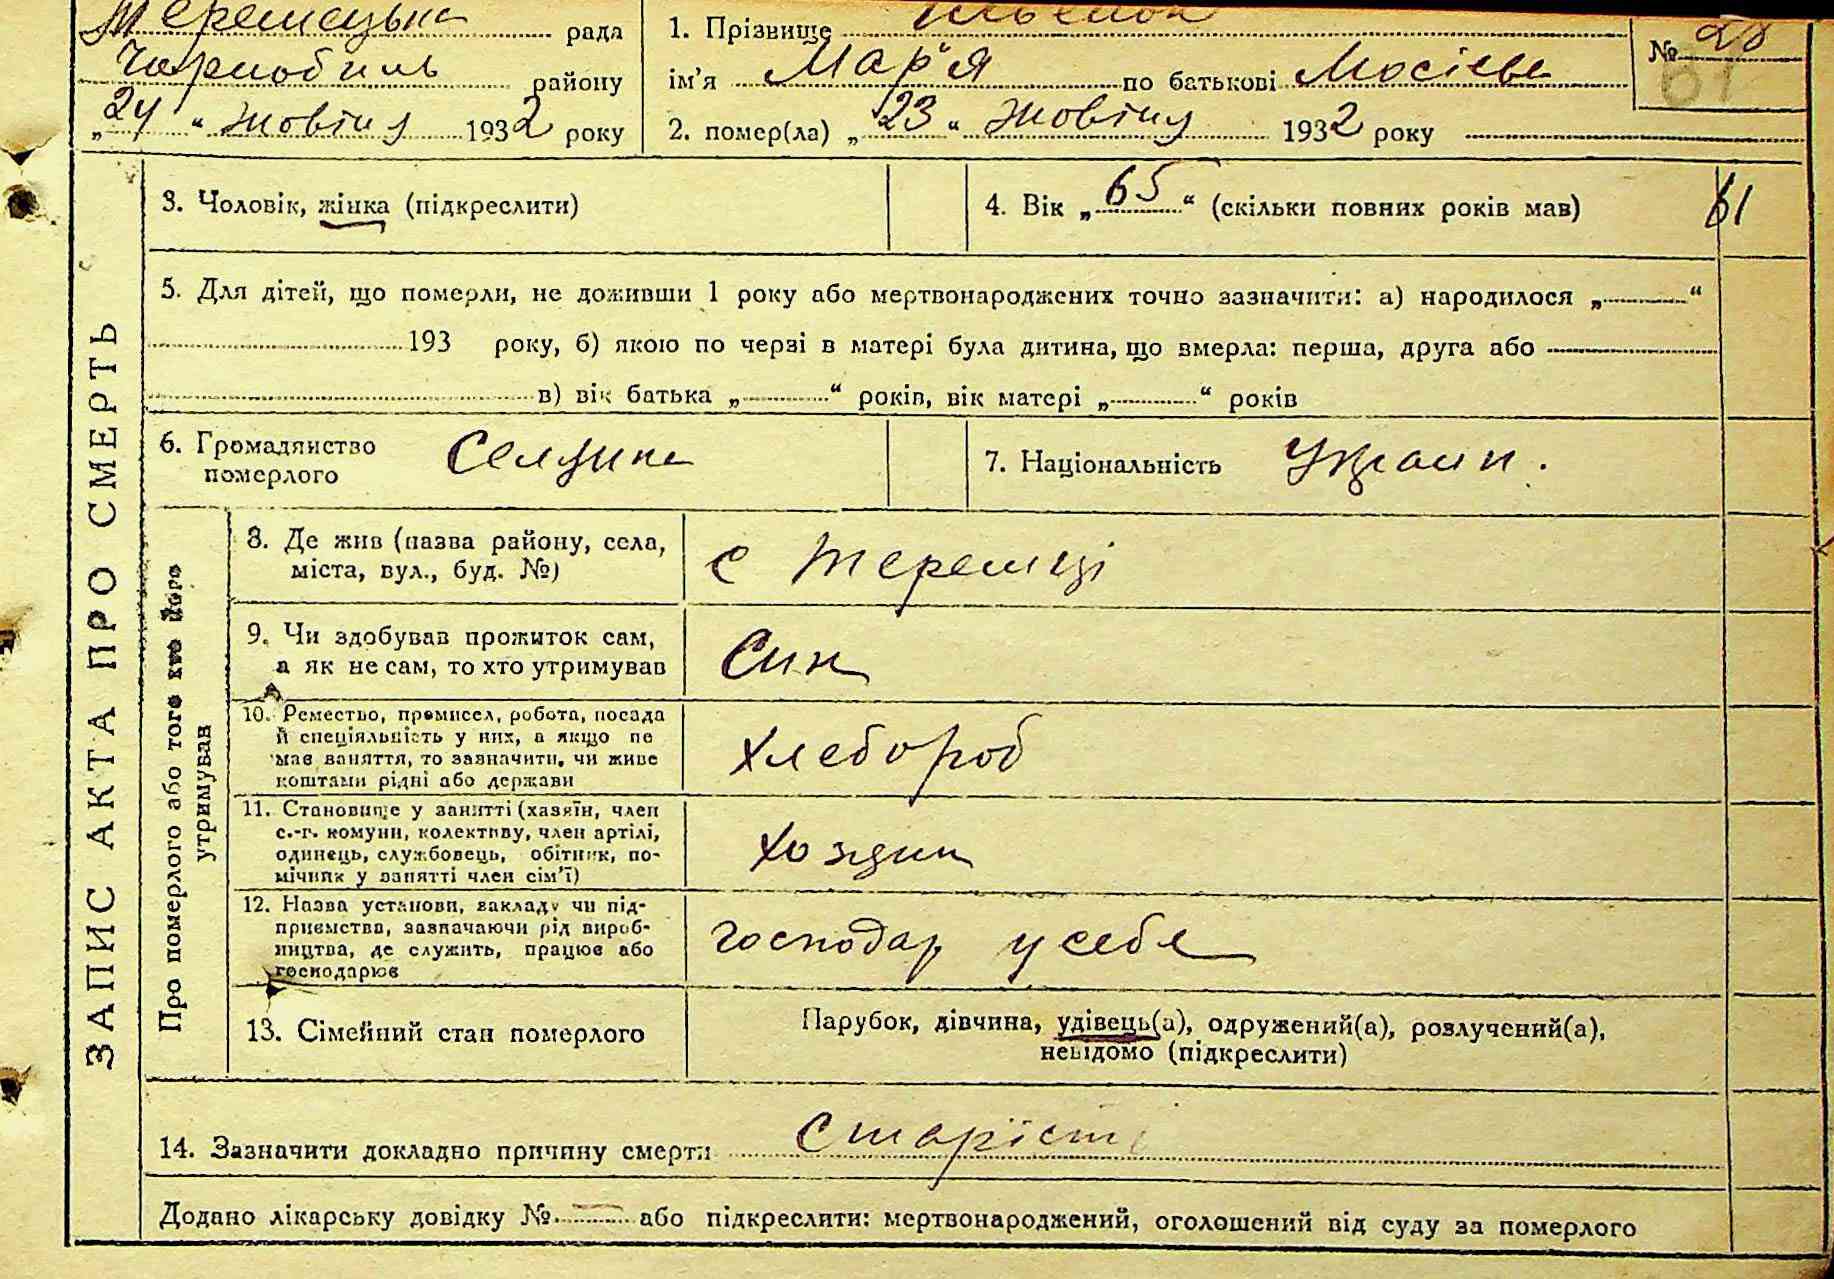 Теремецька рада
Чорнобиль району
„24“ жовтня 1932 року
1. Прізвище
ім’я Мар’я по батькові Мосієва
2. помер(ла) „23“ жовтня 1932 року
№ 28
61
ЗАПИС АКТА ПРО СМЕРТЬ
3. Чоловік, жінка (підкреслити)
4. Вік „65“ (скільки повних років мав)
61
5. Для дітей, що померли, не доживши 1 року або мертвонароджених точно зазначити: а) народилося „ “
193 року, б) якою по черзі в матері була дитина, що вмерла: перша, друга або
в) вік батька „ “ років, вік матері „ “ років
6. Громадянство
померлого
Селянка
7. Національність Україн.
Про померлого або того хто його
утримував
8. Де жив (назва району, села,
міста, вул., буд. №)
с Теремці
9. Чи здобував прожиток сам,
а як не сам, то хто утримував
Син
10. Ремество, промисел, робота, посада
й спеціяльність у них, а якщо не
мав заняття, то зазначити, чи живе
коштами рідні або держави
Хлебороб
11. Становище у занятті (хазяїн, член
с.-г. комуни, колективу, член артілі,
одинець, службовець, обітник, по-
мічник у занятті член сім’ї)
Хозяин
12. Назва установи, закладу чи під-
приємства, зазначаючи рід вироб-
ництва, де служить, працює або
господарює
господар у себе
13. Сімейний стан померлого
Парубок, дівчина, удівець(а), одружений(а), розлучений(а),
невідомо (підкреслити)
14. Зазначити докладно причину смерти Старість
Додано лікарську довідку № або підкреслити: мертвонароджений, оголошений від суду за померлого